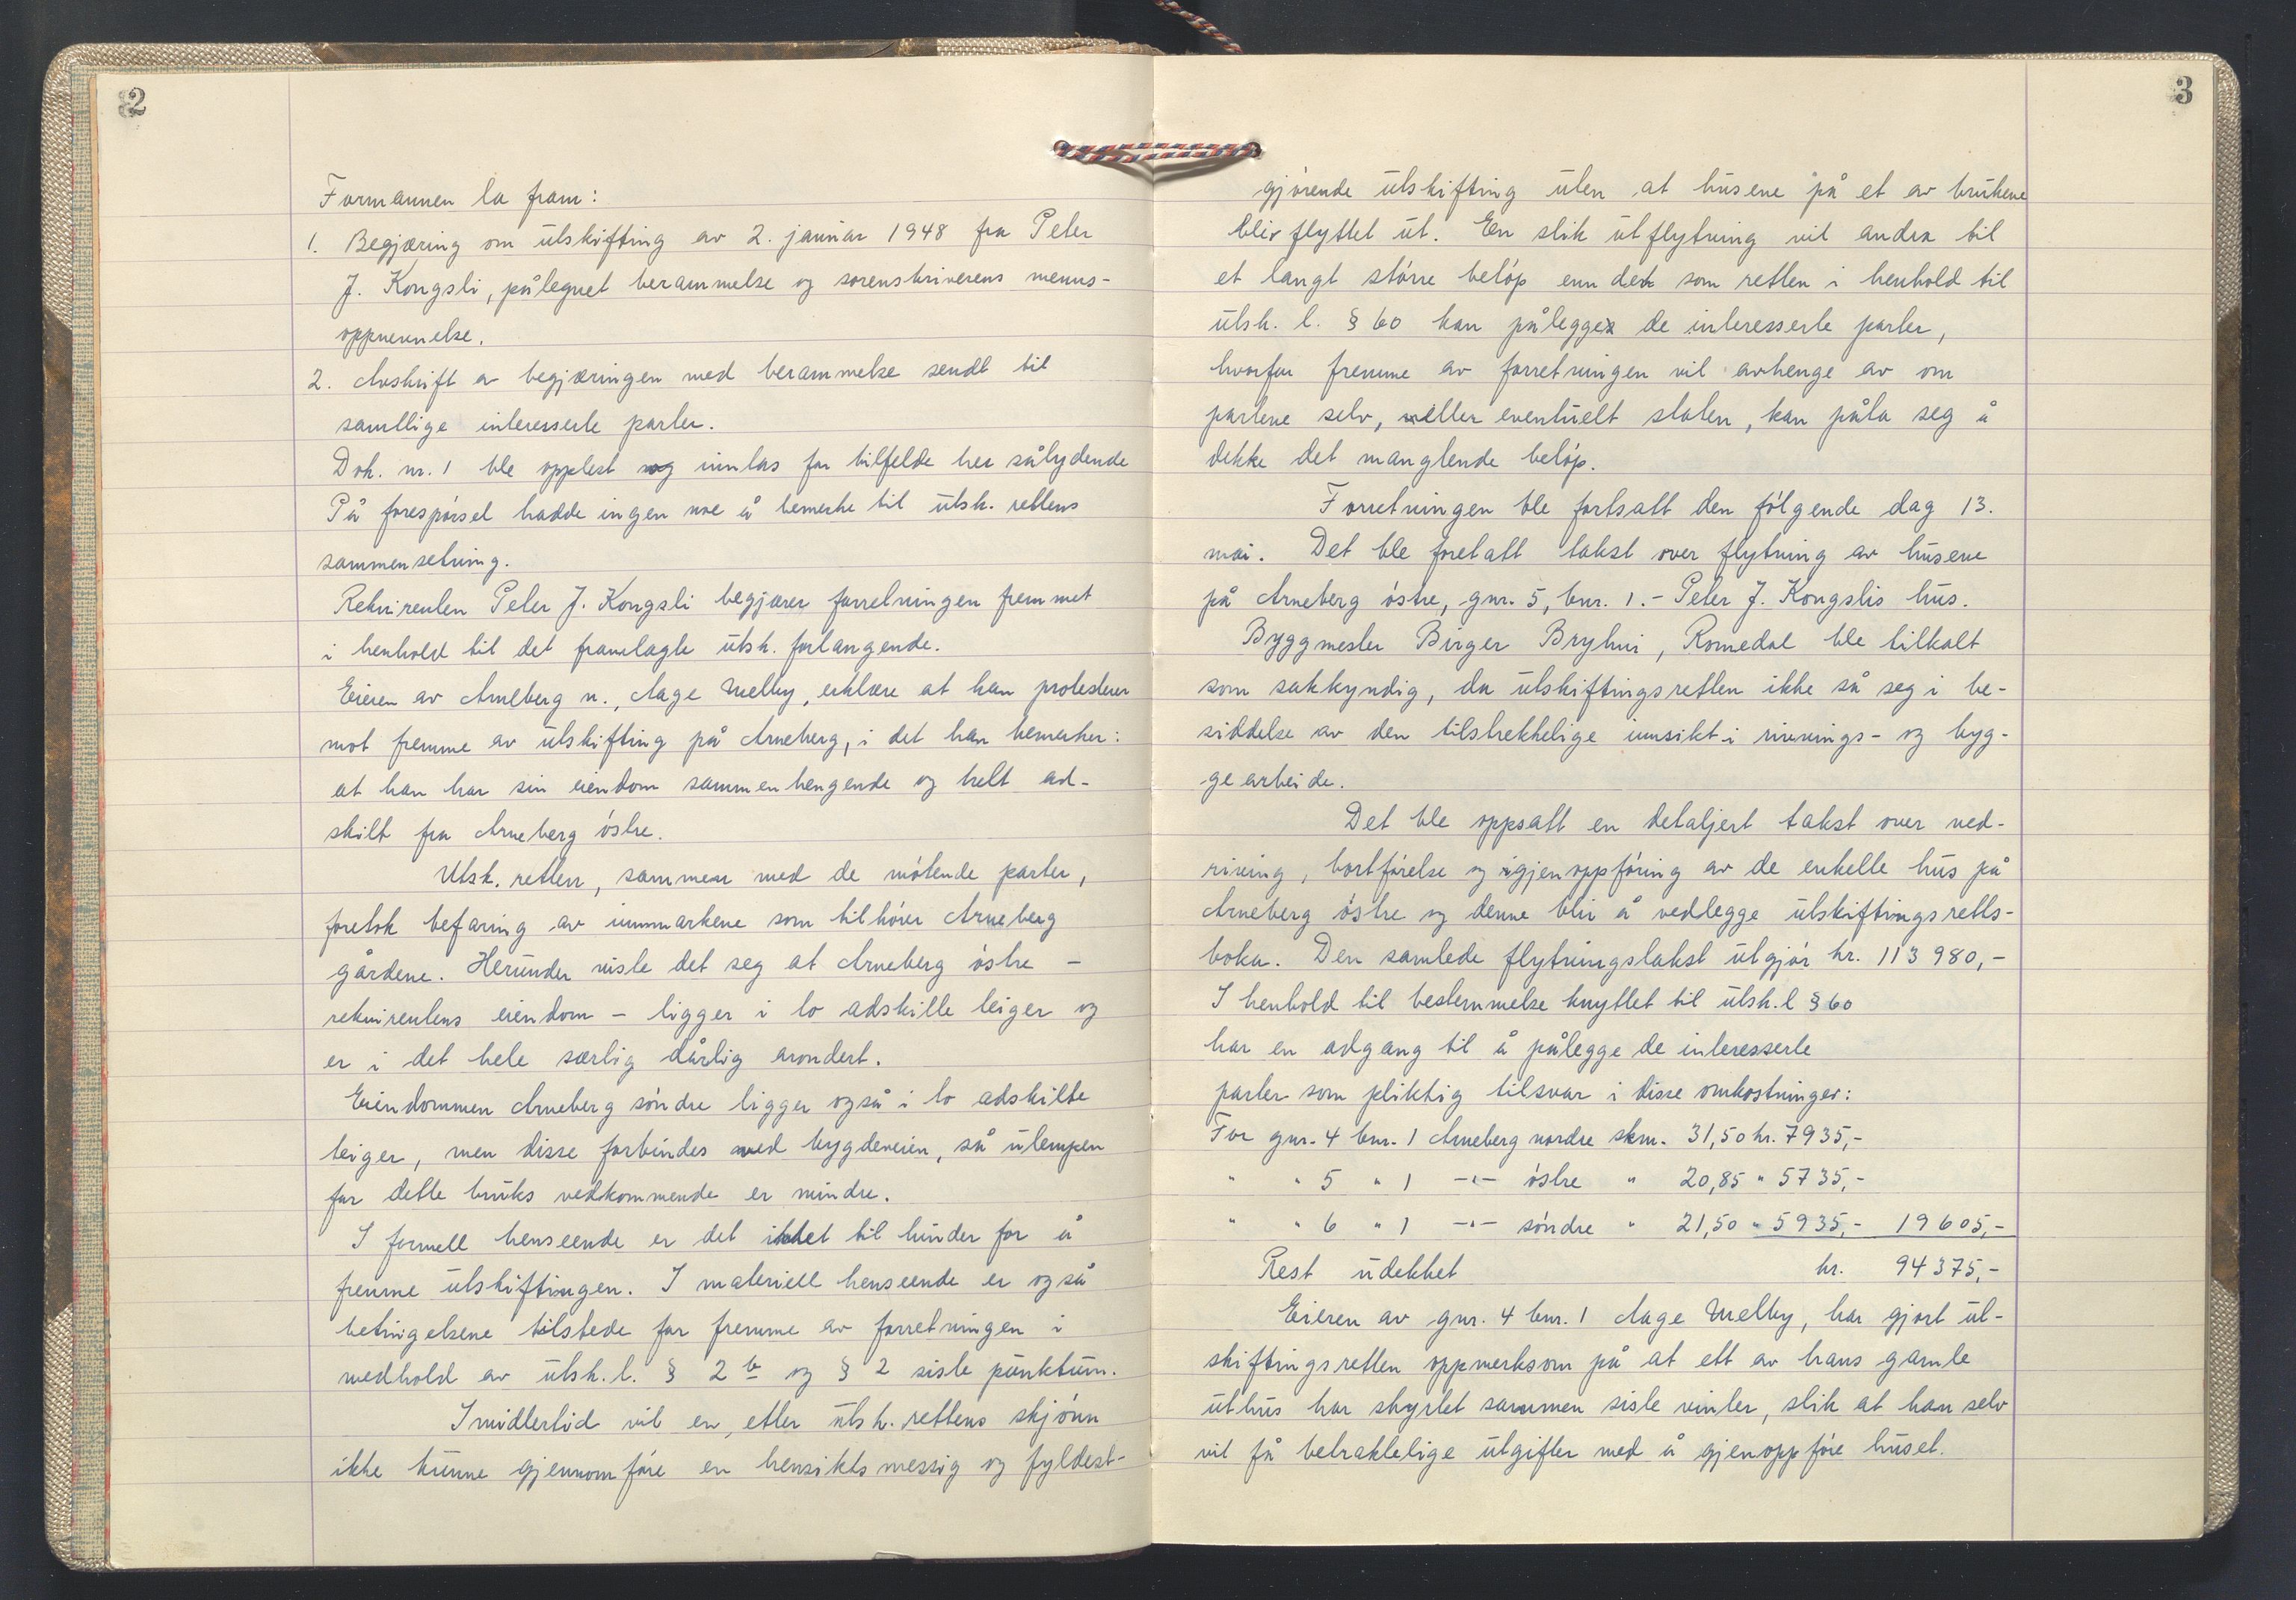 2
Formannen la fram:
1. Begjæring om utskifting av 2. januar 1948 fra Peter
J. Kongsli, påtegnet berammelse og sorenskriverens menns-
oppnevnelse.
2. Avskrift av begjæringen med berammelse sendt til
samtlige interesserte parter.
Dok. nr. 1 ble opplest og innlas for tilfelde her sålydende
På forespørsel hadde ingen noe å bemerke til utsk. rettens
sammensetning.
Rekvirenten Peter J. Kongsli begjærer forretningen fremmet
i henhold til det framlagte utsk. forlangende.
Eieren av Arneberg n., Aage Melby, erklære at han protesterer
mot fremme av utskifting på Arneberg, i det han bemerker:
at han har sin eiendom sammenhengende og helt ad-
skilt fra Arneberg østre.
Utsk. retten, sammen med de møtende parter,
foretok befaring av innmarkene som tilhører Arneberg
gårdene. Herunder viste det seg at Arneberg østre -
rekvirentens eiendom - ligger i to adskilte teiger og
er i det hele særlig dårlig arondert.
Eiendommen Arneberg søndre ligger også i to adskilte
teiger, men disse forbindes med bygdeveien, så ulempen
for dette bruks vedkommende er mindre.
I formell henseende er det intet til hinder for å
fremme utskiftingen. I materiell henseende er også
betingelsene tilstede for fremme av forretningen i
medhold av utsk. l. § 2 b og § 2 siste punktum.
Imidlertid vil en, etter utsk. rettens skjønn
ikke kunne gjennomføre en hensiktsmessig og fyldest-
3
gjørende utskifting uten at husene på et av brukene
blir flyttet ut. En slik utflytning vil andra til
et langt større beløp enn det som retten i henhold til
utsk. l. § 60 kan pålegge de interesserte parter,
hvorfor fremme av forretningen vil avhenge av om
partene selv, eller eventuelt staten, kan påta seg å
dekke det manglende beløp.
Forretningen ble fortsatt den følgende dag 13.
mai. Det ble foretatt takst over flytning av husene
på Arneberg østre, gnr. 5, bnr. 1. - Peter J. Kongslis hus.
Byggmester Birger Bryhni, Romedal ble tilkalt
som sakkyndig, da utskiftingsretten ikke så seg i be-
siddelse av den tilstrekkelige innsikt i rivnings- og byg-
gearbeide.
Det ble oppsatt en detaljert takst over ned-
riving, bortførelse og igjenoppføring av de enkelte hus på
Arneberg østre og denne blir å vedlegge utskiftingsretts-
boka. Den samlede flytningstakst utgjør kr. 113 980,-
I henhold til bestemmelse knyttet til utsk.l § 60
har en adgang til å pålegge de interesserte
parter som pliktig tilsvar i disse omkostninger:
For gnr. 4 bnr. 1 Arneberg nordre skm. 31,50 kr. 7935,-
" " 5 " 1 -"- østre " 20,85 " 5735,-
" " 6 " 1 -"- søndre " 21,50 " 5935,- 19605,-
Rest udekket kr. 94375,-
Eieren av gnr. 4 bnr. 1 Aage Melby, har gjort ut-
skiftingsretten oppmerksom på at ett av hans gamle
uthus har styrtet sammen siste vinter, slik at han selv
vil få betraktelige utgifter med å gjenoppføre huset.